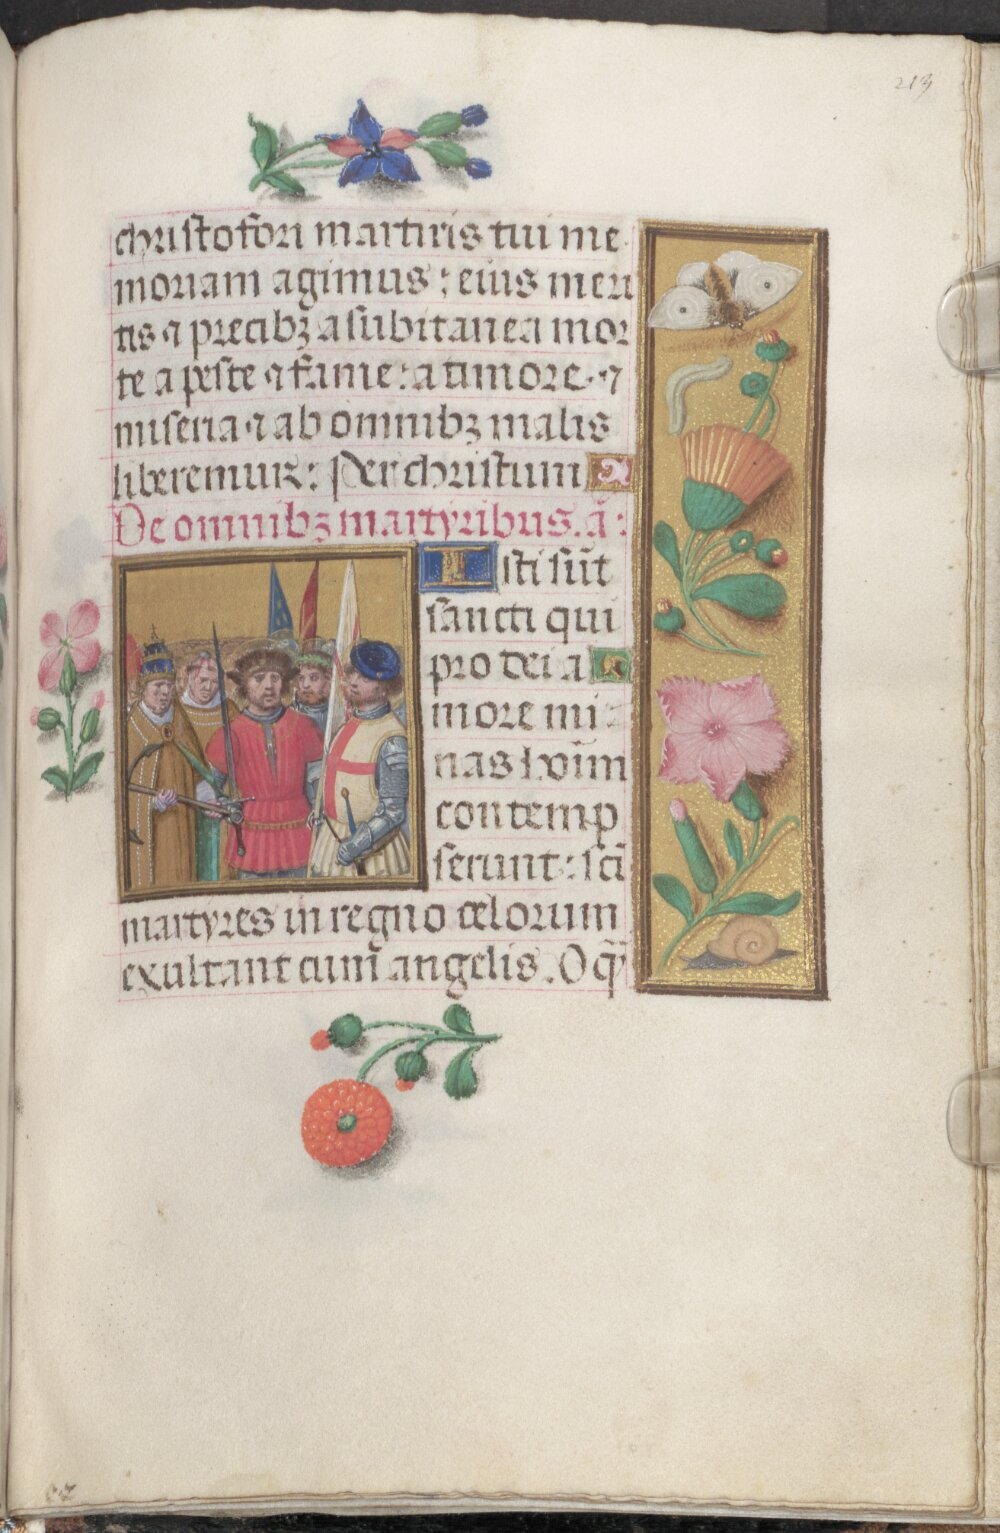 213
christofori martiris tui me
moriam agimus: eius meri
tis ⁊ precibꝫ a subitanea mor
te a peste ⁊ fame: a timore ⁊
miseria ⁊ ab omnibꝫ malis
liberemur: Per christum
De omnibꝫ martyribus. añ:
Isti sūt
sancti qui
pro dei a
more mi
nas hoīm
contemp
serunt: scī
martyres in regno celorum
exultant cum angelis. O q̄